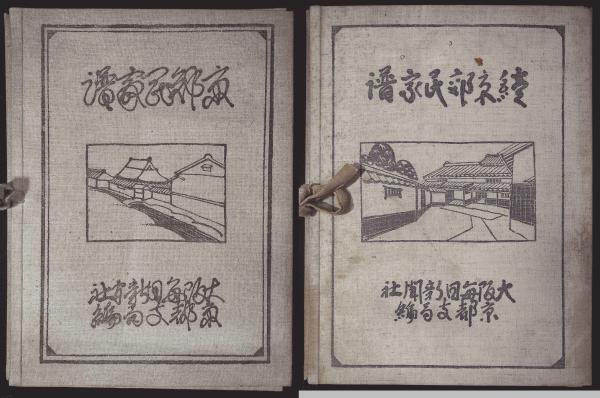 京都民家譜
大阪毎日新聞社
京都支局編
續京都民家譜
大阪毎日新聞社
京都支局編